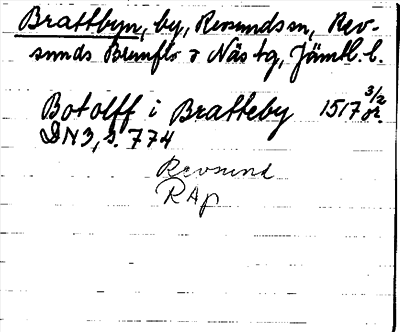 Brattbyn, by, Revsunds sn, Rev-
sunds Brunflo o Näs tg, Jämtl. l.
Botolff i Bratteby 1517 3/2 or.
DN 3, s. 774
Revsund
RAp